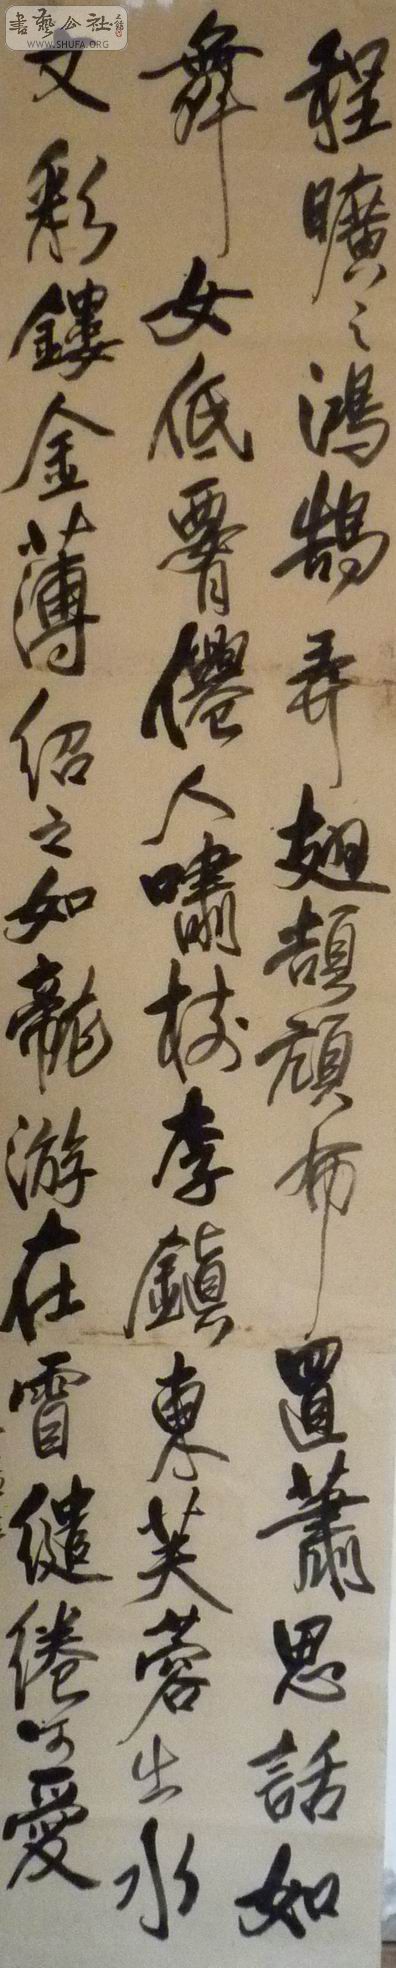 書藝公社
WWW.SHUFA.ORG
程曠之鴻鵠弄翅頡頏布置蕭思話如
舞女低腰僊人嘯樹李鎮東芙蓉出水
文彩鏤金薄紹之如龍游在霄繾綣可愛